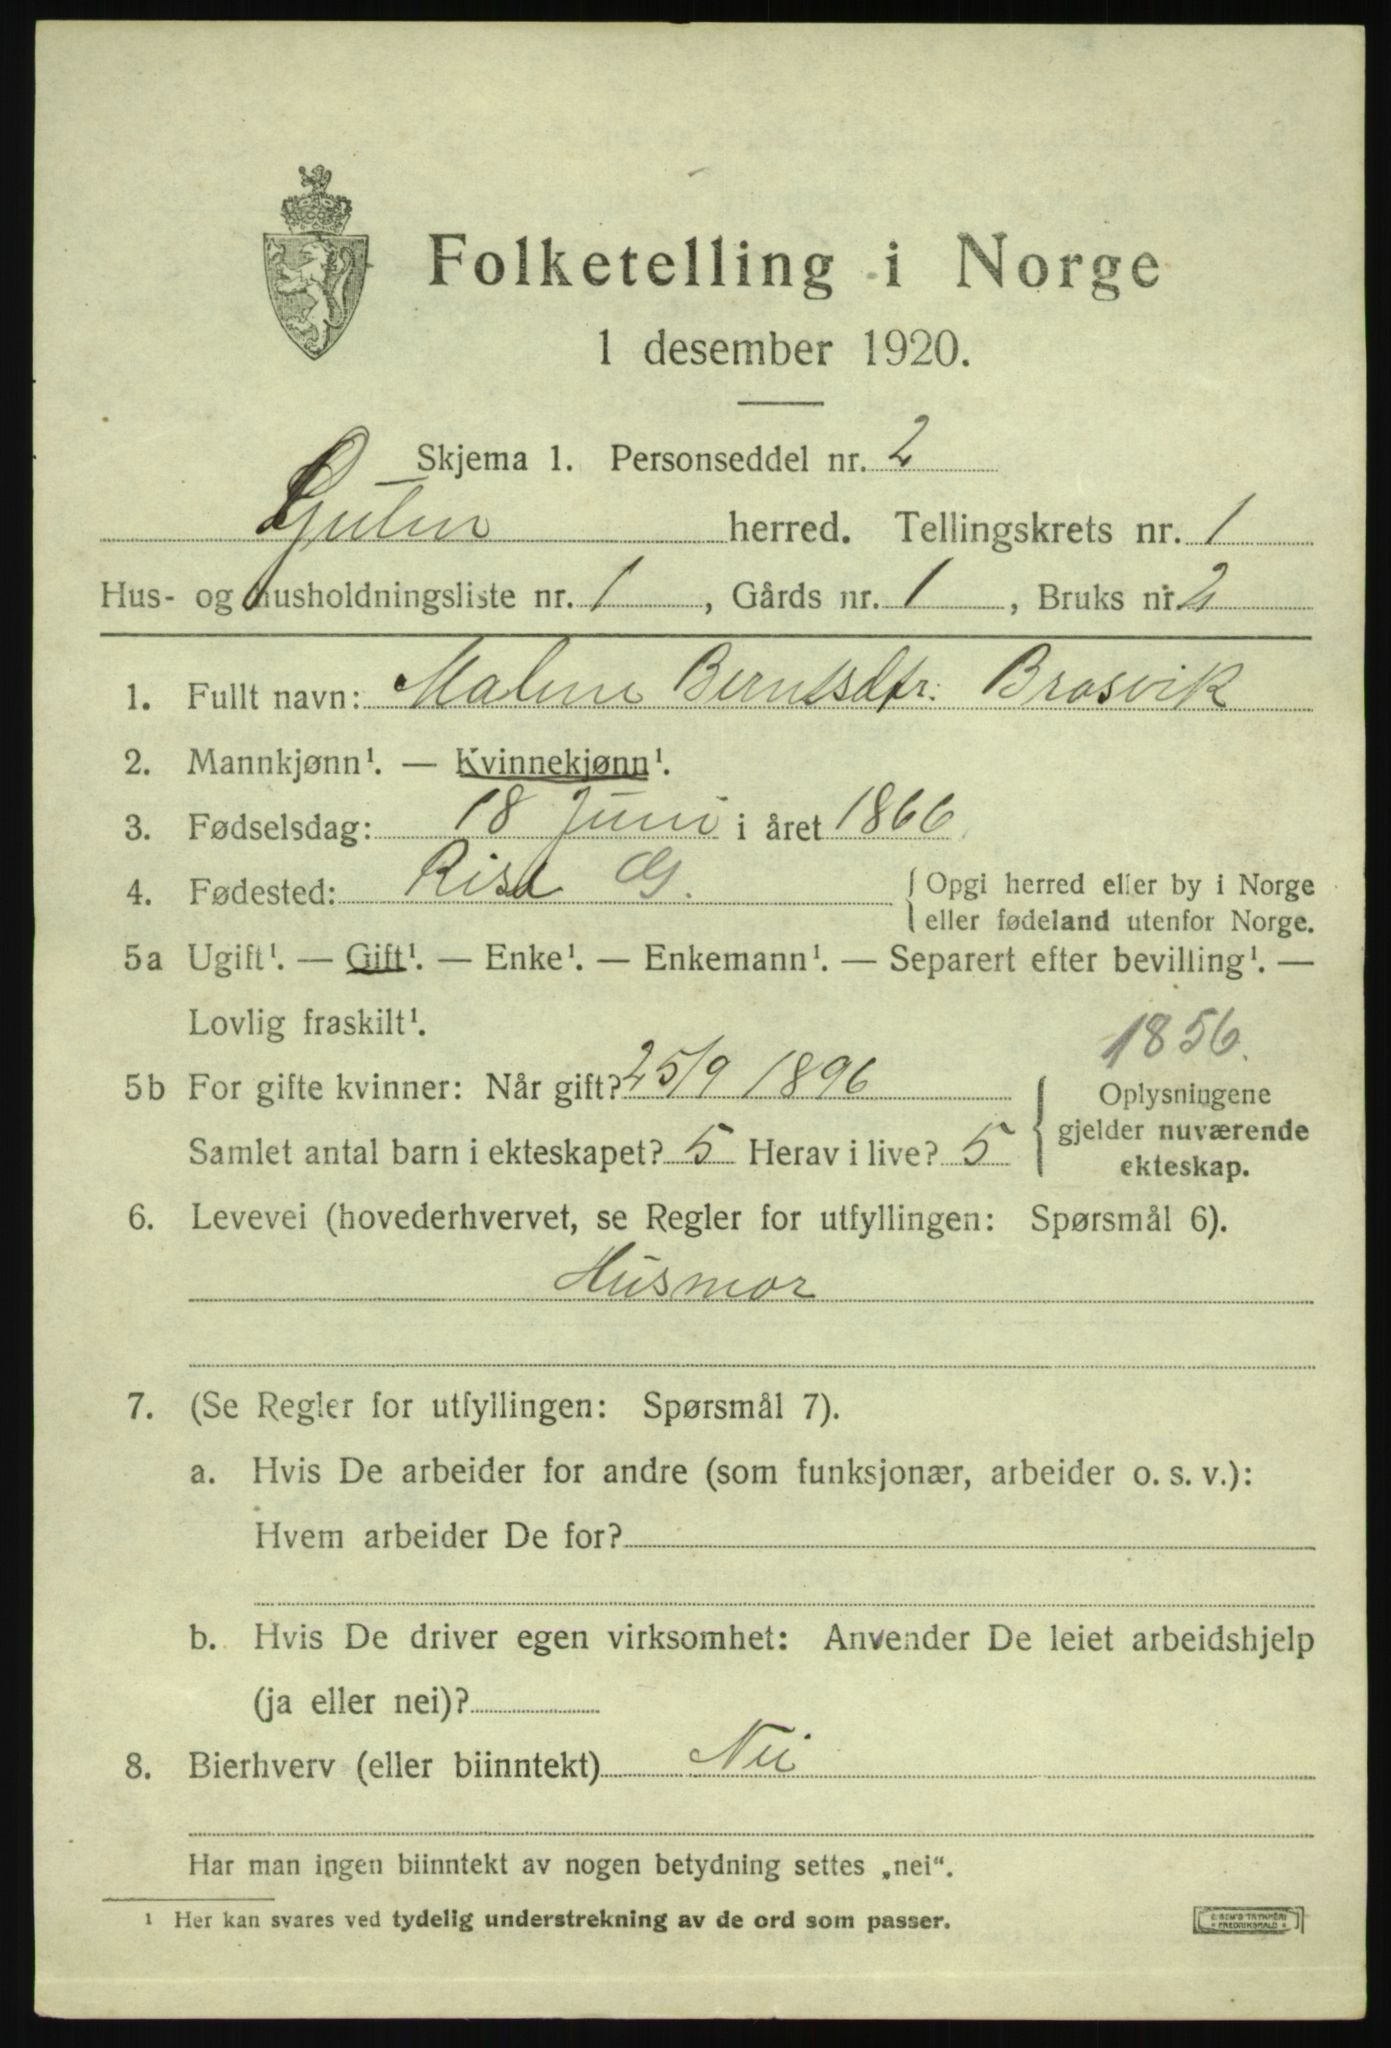 Folketelling i Norge
1 desember 1920.
Skjema 1. Personseddel nr. 2
Gulen herred. Tellingskrets nr. 1
Hus- og husholdningsliste nr. 1, Gårds nr. 1, Bruks nr. 2
1. Fullt navn: Malene Berntsdtr. Brosvik
2. Mannkjønn¹. — Kvinnekjønn¹.
3. Fødselsdag: 18 Juni i året 1866
4. Fødested: Risø G. { Opgi herred eller by i Norge
eller fødeland utenfor Norge.
5a Ugift¹. — Gift¹. — Enke¹. — Enkemann¹. — Separert efter bevilling¹. —
Lovlig fraskilt¹.
1856.
5b For gifte kvinner: Når gift? 25/9 1896 { Oplysningene
gjelder nuværende
Samlet antal barn i ekteskapet? 5 Herav i live? 5
ekteskap.
6. Levevei (hovederhvervet, se Regler for utfyllingen: Spørsmål 6).
Husmor
7. (Se Regler for utfyllingen: Spørsmål 7).
a. Hvis De arbeider for andre (som funksjonær, arbeider o. s. v.):
Hvem arbeider De for?
b. Hvis De driver egen virksomhet: Anvender De leiet arbeidshjelp
(ja eller nei)?
8. Bierhverv (eller biinntekt) Nei
Har man ingen biinntekt av nogen betydning settes „nei“.
¹ Her kan svares ved tydelig understrekning av de ord som passer.